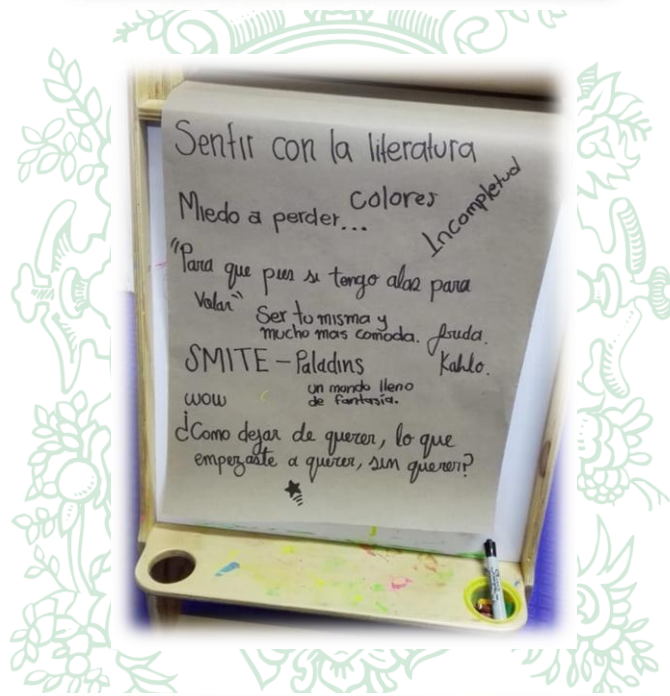 Sentir con la literatura
colores
Miedo a perder...
Incompletud
"Para que pies si tengo alas para
Volar"
Ser tu misma y
mucho mas comoda.
Kahlo.
SMITE - Paladins
un mundo lleno
de fantasía.
wow
¿Como dejar de querer, lo que
empezaste a querer, sin querer?